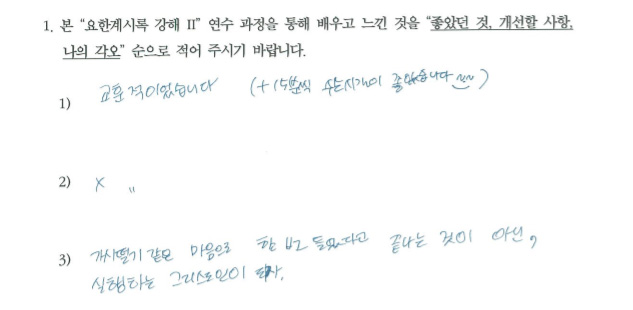 1. 본 "요한계시록 강해 II" 연수 과정을 통해 배우고 느낀 것을 "좋았던 것, 개선할 사항,
나의 각오" 순으로 적어 주시기 바랍니다.
1) 교훈적이었습니다 (+15분씩 쉬는시간이 좋았습니다 ~~)
2) X "
3) 가시떨기 같은 마음으로 한 번 들었다고 끝나는 것이 아닌,
실행하는 그리스도인이 되자.